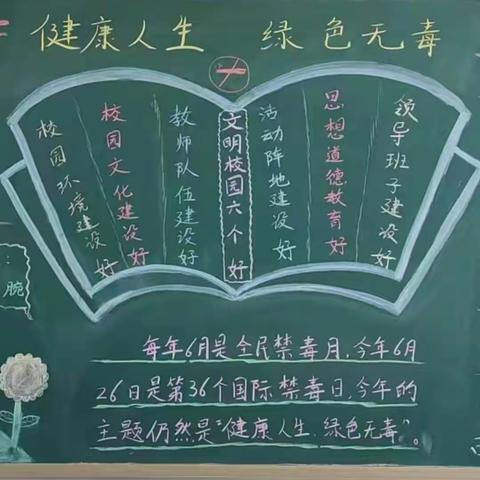 健康人生 绿色无毒
校园环境建设好
校园文化建设好
教师队伍建设好
文明校园六个好
活动阵地建设好
思想道德教育好
领导班子建设好
腕
每年6月是全民禁毒月,今年6月
26日是第36个国际禁毒日,今年的
主题仍然是“健康人生、绿色无毒”。